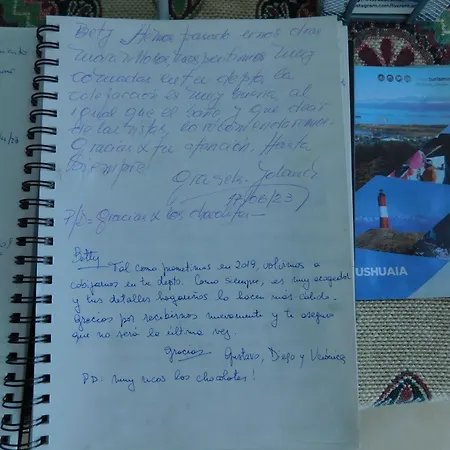 Betty Hemos pasado unos días
maravillosos nos sentimos muy
cómodas en tu depto, la
calefacción es muy buena al
igual que el baño y que decir
de las vistas, lo recomendaremos.
Gracias x tu atención. Hasta
siempre
Graciela Yolanda
17/06/23
P/D= Gracias x los chocolates
Betty
Tal como prometimos en 2019, volvimos a
alojarnos en tu depto. Como siempre, es muy acogedor
y tus detalles hogareños lo hacen más cálido.
Gracias por recibirnos nuevamente y te aseguro
que no será la última vez.
Gracias Gustavo, Diego y Verónica
PD: muy ricos los chocolates!
USHUAIA